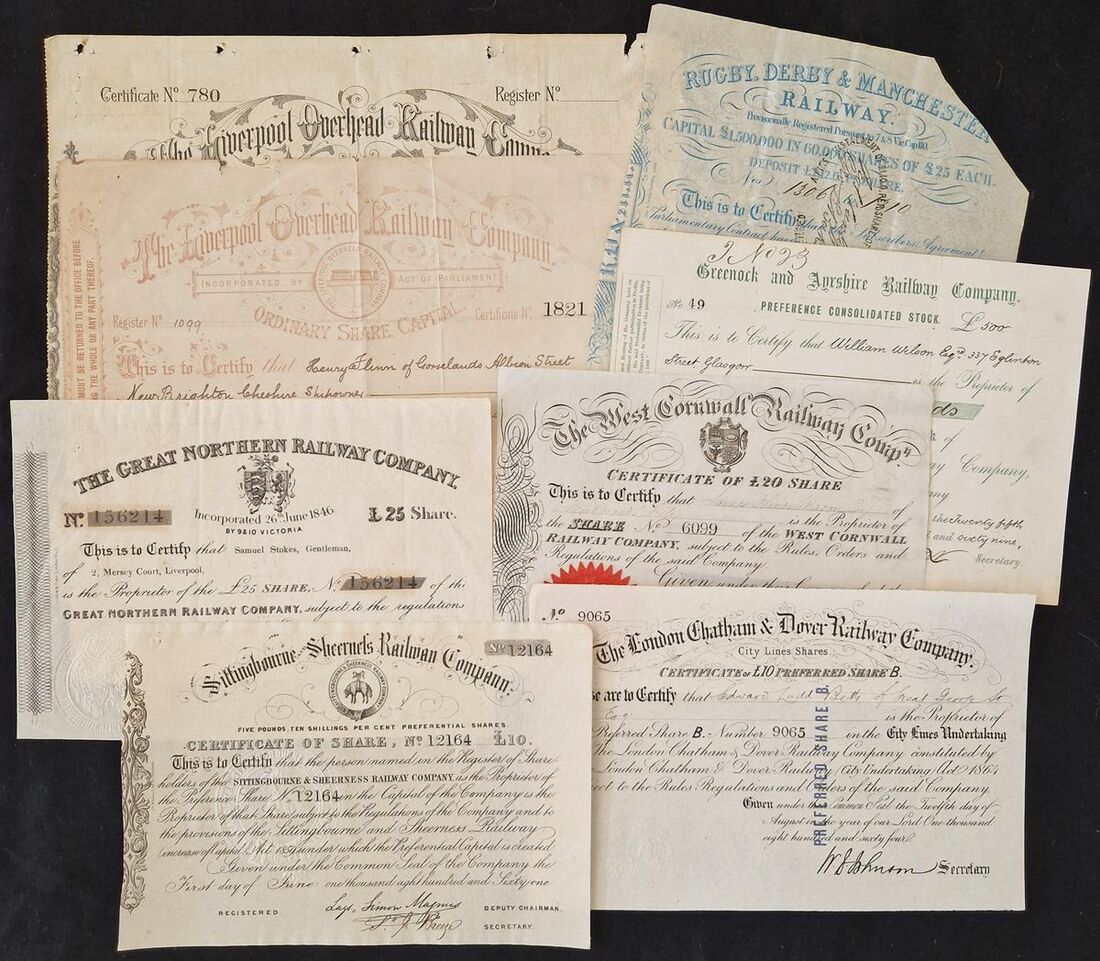 Certificate No. 780
Register No.
The Liverpool Overhead Railway Compn
RUGBY, DERBY & MANCHESTER
RAILWAY.
Provisionally Registered Pursuant to 7 & 8 Vic. Cap. 110.
CAPITAL £1,500,000 IN 60,000 SHARES OF £25 EACH.
DEPOSIT £2.12.6. PR SHARE.
This is to Certify that
Parliamentary Contract
MUST BE RETURNED TO THE OFFICE BEFORE
NG THE WHOLE OR ANY PART THEREOF.
The Liverpool Overhead Railway Company
INCORPORATED BY
ACT OF PARLIAMENT
ORDINARY SHARE CAPITAL
Register No. 1099
Certificate No. 1821
This is to Certify that Henry Flinn of Gorselands Albion Street
New Brighton Cheshire Shipowner
J No 23
Greenock and Ayrshire Railway Company.
PREFERENCE CONSOLIDATED STOCK.
No. 49
£500
This is to Certify that William Wilson Esqr. 337 Eglinton
Street, Glasgow
is the Proprietor of
ds
k of
y Company,
pany
the Twenty fifth
and sixty nine,
Secretary
THE GREAT NORTHERN RAILWAY COMPANY.
No. 156214
Incorporated 26th June 1846.
BY 9 & 10 VICTORIA
£25 Share.
This is to Certify that Samuel Stokes, Gentleman,
of 2, Mersey Court, Liverpool,
is the Proprietor of the £25 SHARE, No. 156214 of the
GREAT NORTHERN RAILWAY COMPANY, subject to the regulations
The West Cornwall Railway Compy
CERTIFICATE OF £20 SHARE
This is to Certify that
of
is the Proprietor of
the SHARE No. 6099 of the WEST CORNWALL
RAILWAY COMPANY, subject to the Rules, Orders and
Regulations of the said Company.
Given under the
Sittingbourne and Sheerness Railway Company.
No. 12164
FIVE POUNDS, TEN SHILLINGS PER CENT PREFERENTIAL SHARES
CERTIFICATE OF SHARE, No. 12164 £10.
This is to Certify that the person named in the Register of Share
holders of the SITTINGBOURNE & SHEERNESS RAILWAY COMPANY as the Proprietor of
the Preference Share No. 12164 in the Capital of the Company is the
Proprietor of that Share, subject to the Regulations of the Company and to
the provisions of the Sittingbourne and Sheerness Railway
increase of Capital Act 1859 under which the Preferential Capital is created
Given under the Common Seal of the Company the
First day of June one thousand eight hundred and Sixty one
REGISTERED.
Simon Magnus
DEPUTY CHAIRMAN.
SECRETARY.
No. 9065
The London Chatham & Dover Railway Company.
City Lines Shares.
CERTIFICATE OF £10 PREFERRED SHARE B.
se are to Certify that Edward Ladd Betts of Great George St
Esq
is the Proprietor of
Preferred Share B. Number 9065 in the City Lines Undertaking
The London Chatham & Dover Railway Company constituted by
London Chatham & Dover Railway (City Undertaking) Act 1864
ect to the Rules Regulations and Orders of the said Company.
Given under the Common Seal the Twelfth day of
August in the year of our Lord One thousand
eight hundred and sixty four
PREFERRED SHARE B.
W E Johnson Secretary